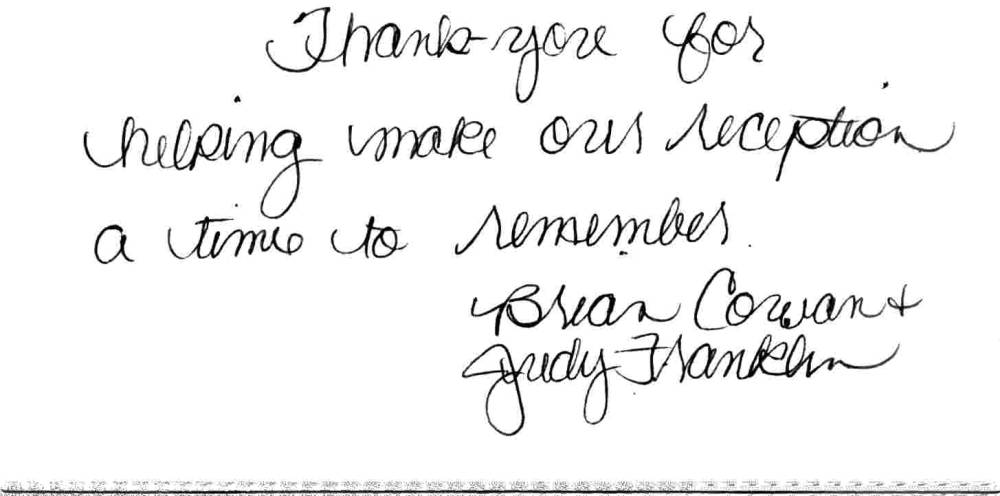 Thank-you for
helping make our reception
a time to remember.
Brian Cowan +
Judy Franklin